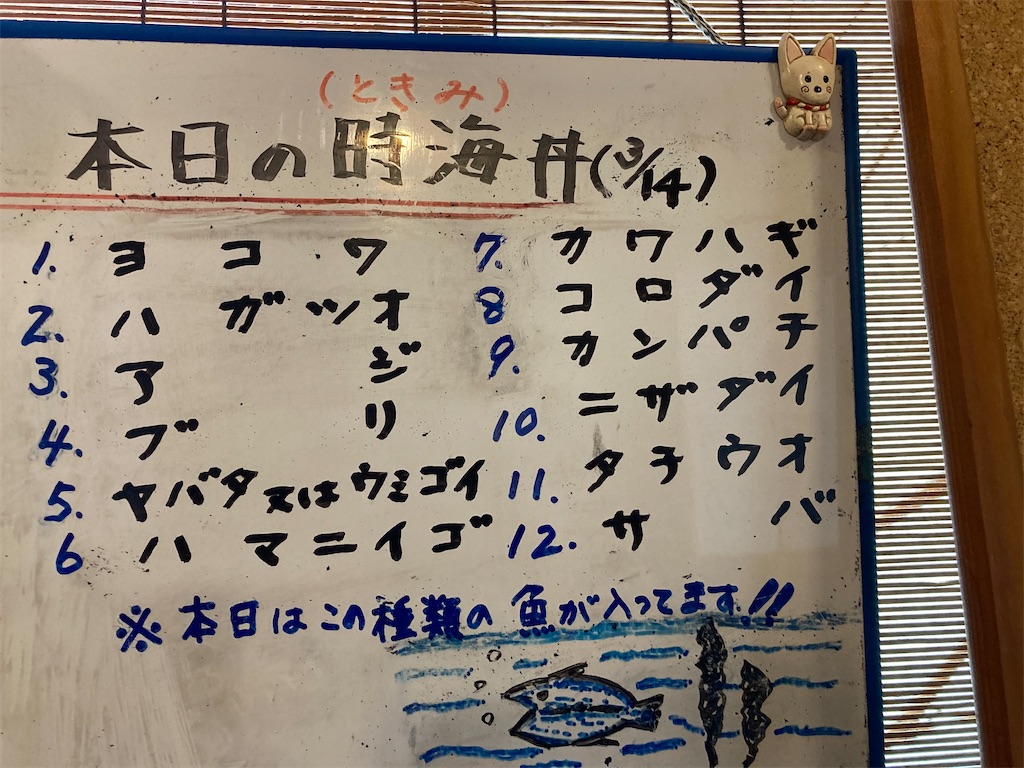 (ときみ)
本日の時海丼(3/14)
1. ヨコワ
2. ハガツオ
3. アジ
4. ブリ
5. ヤバタヌはウミゴイ
6 ハマニイゴ
7. カワハギ
8 コロダイ
9. カンパチ
10. ニザダイ
11. タチウオ
12. サバ
※本日はこの種類の魚が入ってます!!